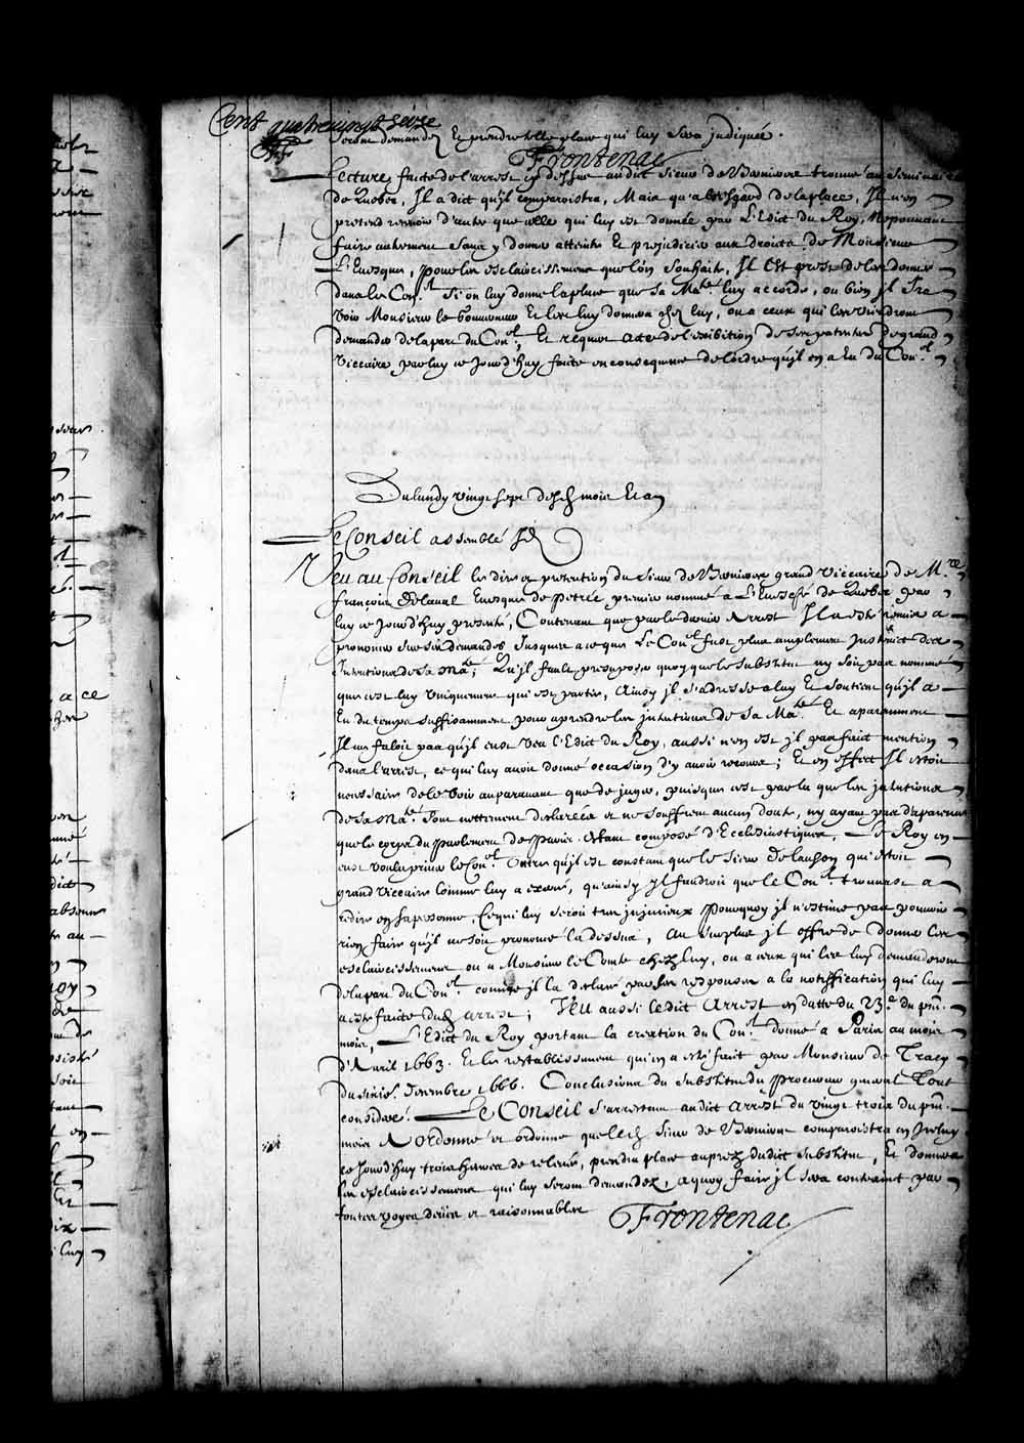 Cent quatrevingt seize
seront demandez Et prendre telle place qui luy sera judiquée.
Frontenac
Lecture faite de l'arrest cy dessus audict Sieur de Bernieres trouué au Seminaire
de Quebec, Il a dict qu'il comparoistra, Mais qu'a l'esgard de la place, Il n'en
pretend point d'autre que celle qui luy est donnée par L'Edict du Roy, Ne pouuant
faire autrement sans y donner atteinte Et prejudicier aux droits de Monsieur
L'Euesque, pour les esclaircissemens que l'on souhaite, Il Est prest de les donner
dans le Con.el Si on luy donne la place que Sa Ma.té luy accorde, ou bien Il Ira
voir Monsieur le Gouuerneur Et les luy donnera chez luy, ou a ceux qui les viendront
demander de la part du Con.el, Et requiert acte de l'exibition de ses patentes de grand
Viccaire par luy ce Jourd'huy faite en consequence de l'ordre qu'il en a Eu du Con.el
Du lundy vingt sept desd. mois Et an
Le Conseil assemblé
Veu au Conseil les dires et pretention du Sieur de Bernieres grand Viccaire de M.re
françois de laual Euesque de Petrée premier nommé a L'Euesché de Quebec par
luy ce Jourd'huy presenté, Contenant que par le dernier Arrest Il a esté remis a
prononcer sur ses demandes Jusques a ce que Le Con.el fust plus amplement Instruict des
Intentions de sa Ma.té; Qu'il fault presuposer quoy que le Substitut n'y soit pas nommé
que c'est luy vniquement qui est partie, Ainsy Il s'adresse a luy Et soutient qu'il a
Eu du temps suffisamment pour aprendre les intentions de sa Ma.té Et aparamment
Il ne faloit pas qu'il eust veu l'Edict du Roy, aussi n'en est il pas fait mention
dans l'arrest, ce qui luy auoit donné occasion d'y auoir recours; Et en effect Il estoit
necessaire de le voir auparauant que de juger, puisque c'est par la que les intentions
de sa Ma.té sont nettement declarées et ne souffrent aucun doute, n'y ayant pas d'aparence
que le corps du parlement de Paris estant composé d'Ecclesiastiques, Le Roy en
eust voulu priuer le Con.el Outre qu'il est constant que le Sieur de lauson qui estoit
grand Viccaire Comme luy a exercé, qu'ainsy Il faudroit que le Con.el trouuast a
redire en sa personne, Ce qui luy seroit tres injurieux Pourquoy il n'estime pas pouuoir
rien faire qu'il ne soit prononcé la dessus, Au surplus il offre de donner les
esclaircissemens ou a Monsieur le Comte chez luy, ou a ceux qui les luy demanderont
de la part du Con.el comme il l'a declaré par ses responses a la notiffication qui luy
a esté faite dud. arrest; Veu aussi ledict Arrest en datte du 23.e du pñt
mois, L'Edict du Roy portant la creation du Con.el donné a Paris au mois
d'Auril 1663. Et le restablissement qui en a esté fait par Monsieur de Tracy
du sixie. decembre 1666. Conclusions du Substitut du Procureur general Tout
consideré. Le Conseil s'arrestant audict Arrest du vingt trois du pñt
mois A ordonné et ordonne que led. Sieur de Bernieres comparoistra en Iceluy
ce Jourd'huy trois heures de releuée, prendra place auprez dudict Substitut, Et donnera
les esclaircissemens qui luy seront demandez, a quoy faire il sera contraint par
toutes voyes deües et raisonnables Frontenac